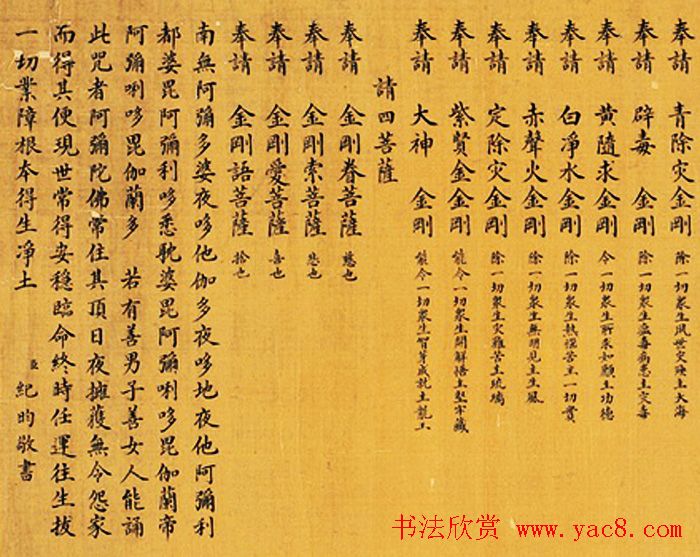 奉請 青除灾金剛 除一切衆生夙世灾殃主大海
奉請 辟毒 金剛 除一切衆生瘟毒病患主灾毒
奉請 黄隨求金剛 令一切衆生所求如願主功德
奉請 白淨水金剛 除一切衆生熱惱苦主一切寶
奉請 赤聲火金剛 除一切衆生無明見主生風
奉請 定除灾金剛 除一切衆生灾難苦主琉璃
奉請 紫賢金金剛 能令一切衆生開解悟主堅牢藏
奉請 大神 金剛 能令一切衆生智芽成就主龍王
請四菩薩
奉請 金剛眷菩薩 慈也
奉請 金剛索菩薩 悲也
奉請 金剛愛菩薩 喜也
奉請 金剛語菩薩 捨也
南無阿彌多婆夜哆他伽多夜哆地夜他阿彌利
都婆毘阿彌利哆悉耽婆毘阿彌唎哆毘伽蘭帝
阿彌唎哆毘伽蘭多 若有善男子善女人能誦
此咒者阿彌陀佛常住其頂日夜擁護無令怨家
而得其便現世常得安穩臨命終時任運往生拔
一切業障根本得生淨土 臣紀昀敬書
书法欣赏 www.yac8.com